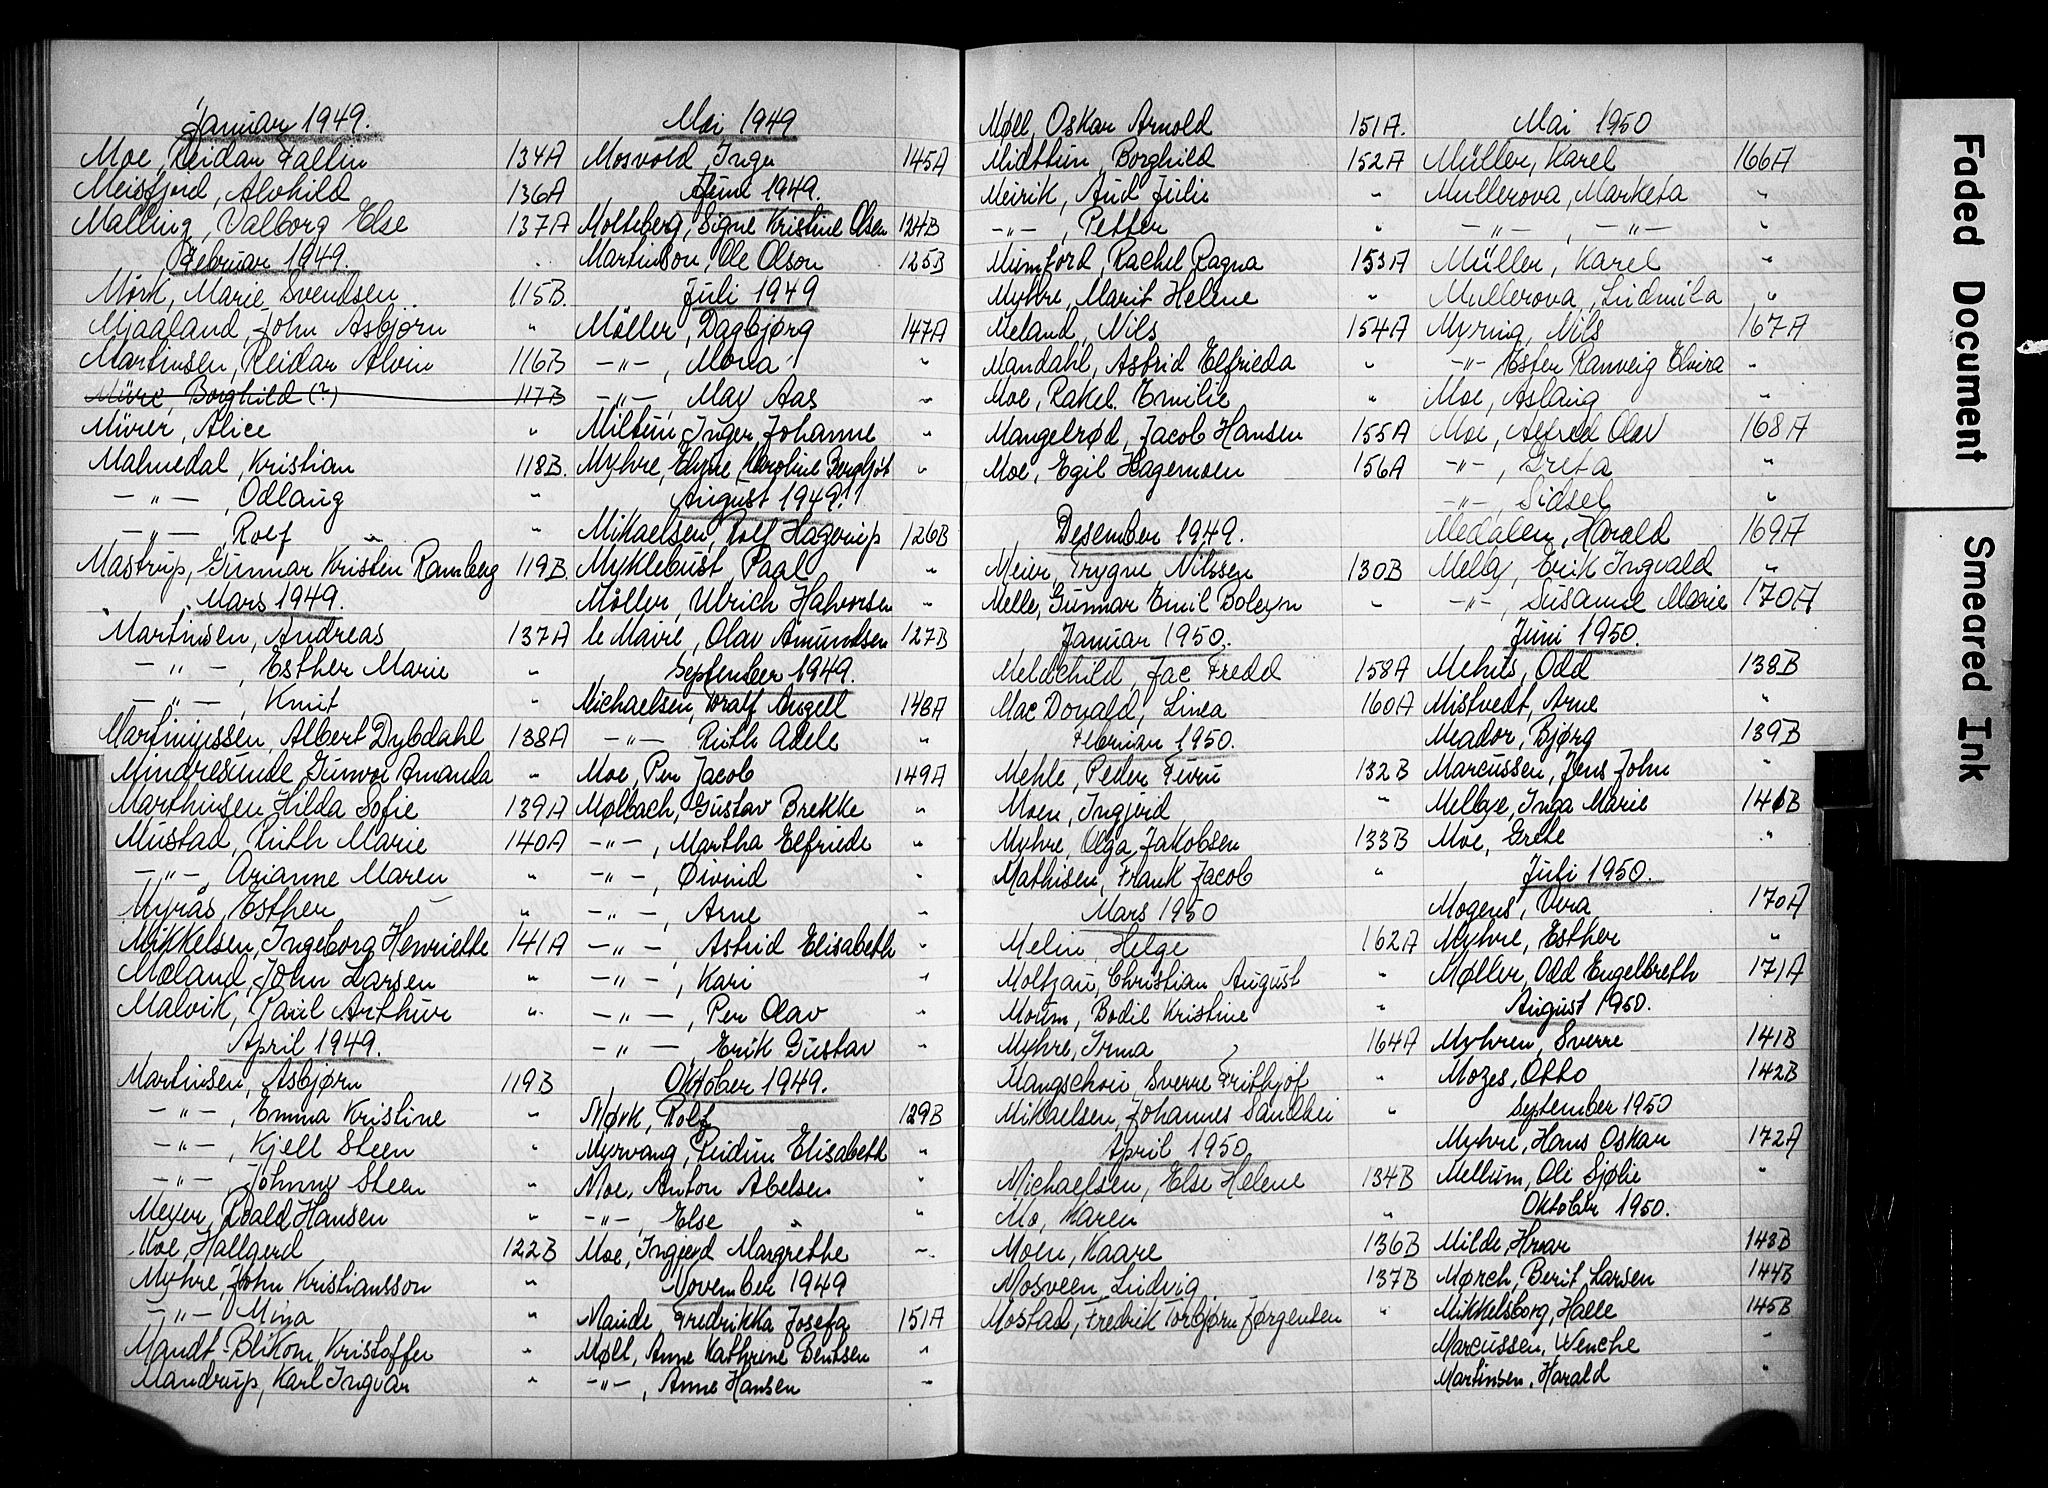 Januar 1949.
Moe, Reidar Fallin 134A
Meisfjord, Alvhild 136A
Malling, Valborg Else 137A
Februar 1949.
Mörk, Marie Svendsen 115B.
Mjaaland, John Asbjørn "
Martinsen, Reidar Alvin 116B
Mürer, Borghild (?) 117B
Mürer, Alice "
Malmedal, Kristian 118B.
-"-, Odlaug "
-"-, Rolf "
Mastrup, Gunnar Kristen Ramberg 119B.
Mars 1949.
Martinsen, Andreas 137A
-"-, Esther Marie "
-"-, Knut "
Martiniussen, Albert Dybdahl 138A
Mindresunde, Gunvor Amanda "
Marthinsen Hilda Sofie 139A
Mustad, Ruth Marie 140A
-"-, Arianne Maren "
Myrås, Esther "
Mikkelsen, Ingeborg Henriette 141A
Mæland, John Larsen "
Malvik, Paul Arthur "
April 1949.
Martinsen, Asbjørn 119B
-"-, Emma Kristine "
-"-, Kjell Steen "
-"-, Johnny Steen "
Meyer, Roald Hansen "
Moe, Hallgerd 122B
Myhre, John Kristiansson "
-"- Mina "
Mandt-Blikom, Kristoffer "
Mandrup, Karl Ingvar "
Mai 1949
Mosvold, Inger 145A
Juni 1949.
Molteberg, Signe Kristine Olsen 124B
Martinson, Ole Olson 125B
Juli 1949
Möller, Dagbjørg 147A
-"-, Mona "
-"-, May Aas "
Miltun, Inger Johanne "
Myhre, Elyne Karoline Bergljot "
August 1949.
Mikaelsen, Rolf Hagerup 126B
Myklebust Paal "
Möller, Ulrich Halvorsen "
le Maire, Olav Amundsen 127B
September 1949.
Michaelsen, Toralf Angell 148A
-"- Ruth Adele "
Moe, Per Jacob 149A
Mølbach, Gustav Brekke "
-"-, Martha Elfriede "
-"-, Øivind "
-"-, Arne "
-"-, Astrid Elisabeth "
-"-, Kari "
-"-, Per Olav "
-"-, Erik Gustav "
Oktober 1949.
Mørk, Rolf 129B
Myrvang, Reidun Elisabeth "
Moe, Anton Abelsen "
-"-, Else "
Moe, Ingjerd Margrethe "
November 1949
Maude, Fredrikka Josefa 151A
Møll, Anne Kathrine Bentsen "
-"-, Anne Hansen "
Møll, Oskar Arnold 151A.
Midttun, Borghild 152A
Meirik, Aud Julie "
-"-, Petter "
Mumford, Rachel Ragna 153A
Myhre, Marit Helene "
Meland, Nils 154A
Mandahl, Astrid Elfrieda "
Moe, Rakel Emilie "
Mangelrød, Jacob Hansen 155A
Moe, Egil Hagemoen 156A
Desember 1949.
Meier, Trygve Nilssen 130B
Melle, Gunnar Emil Boleyn "
Januar 1950.
Meldchild, Jac Fredd 158A
Mac Donald, Linea 160A
Februar 1950.
Mehle, Peder Furu 132B
Moen, Ingjerd "
Myhre, Olga Jakobsen 133B
Mathisen, Frank Jacob "
Mars 1950
Melin, Helge 162A
Moltzau, Christian August "
Morum, Bodil Kristine "
Myhre, Irma 164A
Mangschou, Sverre Frithjof "
Mikaelsen, Johannes Sandhei "
April 1950
Michaelsen, Else Helene 134B
Mo, Maren "
Moen, Kaare 136B
Mosveen, Ludvig 137B
Mostad, Fredrik Torbjørn Jørgensen "
Mai 1950
Müller, Karel 166A
Mullerova, Marketa "
-"-, -"- "
Müller, Karel "
Mullerova, Ludmila "
Myring, Nils 167A
-"- Ester Ranveig Elvira "
Moe, Aslaug "
Moe, Alfred Olav 168A
-"-, Greta "
-"-, Sidsel "
Medalen, Harald 169A
Melby, Erik Ingvald "
-"-, Susanne Marie 170A
Juni 1950.
Mehus, Odd 138B
Mistvedt, Arne "
Meador, Bjørg 139B
Marcussen, Jens John "
Melbye, Inga Marie 141B
Moe, Grete "
Juli 1950.
Mogens, Vera 170A
Myhre, Esther "
Møller, Odd Engelbreth 171A
August 1950.
Myhren, Sverre 141B
Mozes, Otto 142B
September 1950
Myhre, Hans Oskar 172A
Mellum, Oli Sjølie "
Oktober 1950.
Milde, Hroar 143B
Mørch, Berit Larsen 144B
Mikkelsborg, Halle 145B
Marcussen, Wenche "
Martinsen, Harald "
Faded Document
Smeared Ink